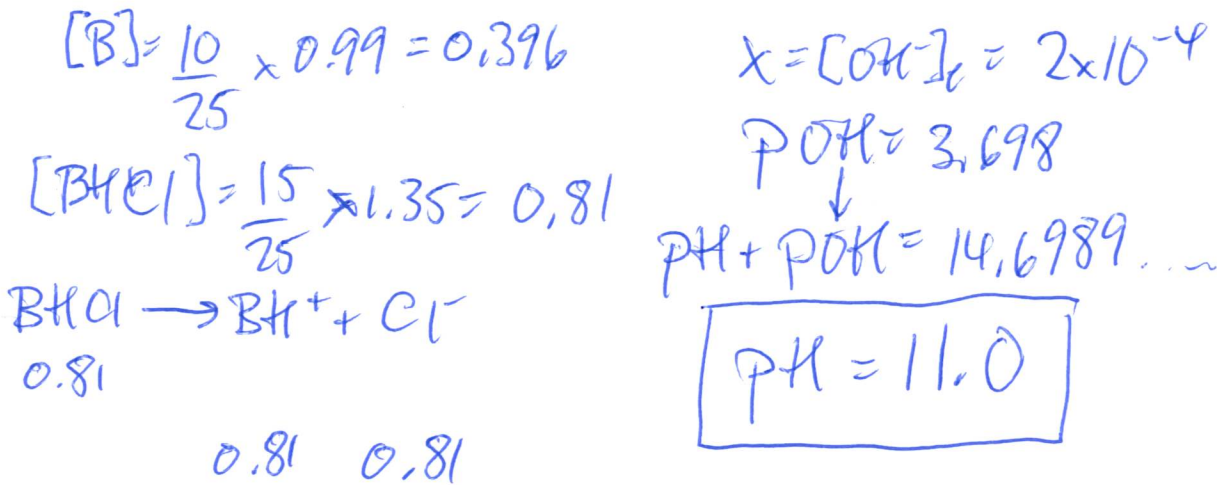 [B] = 10/25 × 0.99 = 0.396
[BHCl] = 15/25 × 1.35 = 0.81
BHCl → BH⁺ + Cl⁻
0.81
0.81 0.81
x = [OH⁻]e = 2×10⁻⁴
pOH = 3.698
↓
pH + pOH = 14.6989...
pH = 11.0